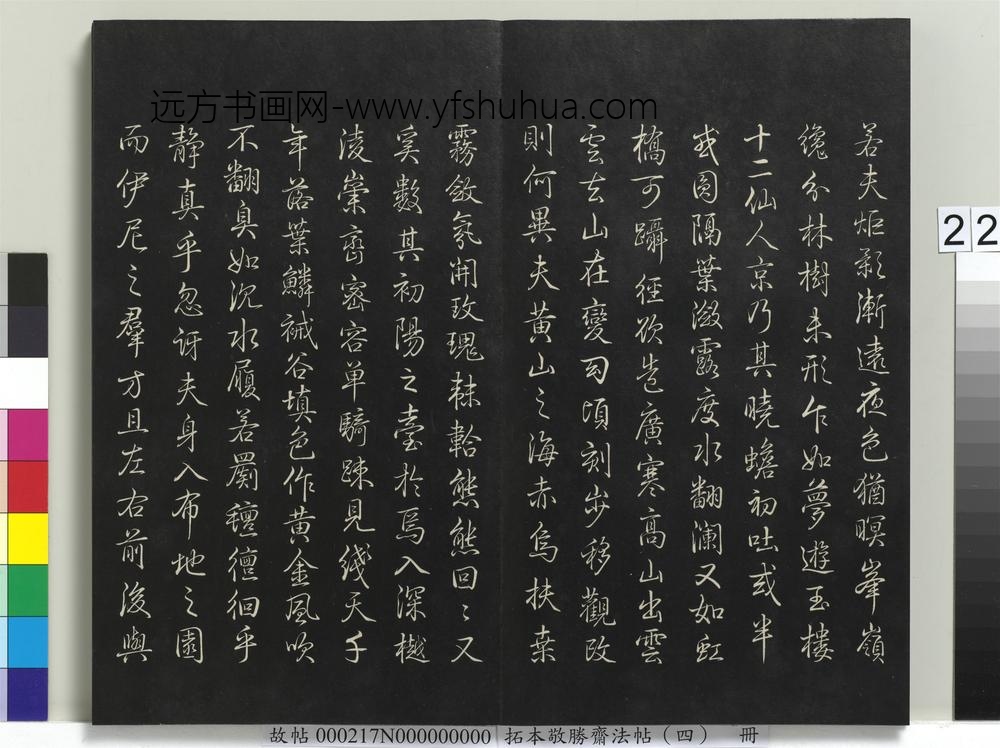 远方书画网-www.yfshuhua.com
若夫炬影漸遠夜色猶暝峯嶺
纔分林樹未形乍如夢遊玉樓
十二仙人京乃其曉蟾初吐或半
或圓隔葉漏露度水翻瀾又如虹
橋可躡徑欲造廣寒高山出雲
雲去山在變幻頃刻步移觀改
則何異夫黄山之海赤烏扶桑
霧斂氛開玫瑰 熊熊回回又
奚數其初陽之臺於焉入深樾
淩 密容單騎踈見綫天千
年落葉鱗 谷填色作黄金風吹
不翻臭如沉水履若罽氊儃徊乎
静真乎忽訝夫身入布地之園
而伊尼之羣才且左右前後與
22
故帖 000217N000000000 拓本敬勝齋法帖（四） 冊